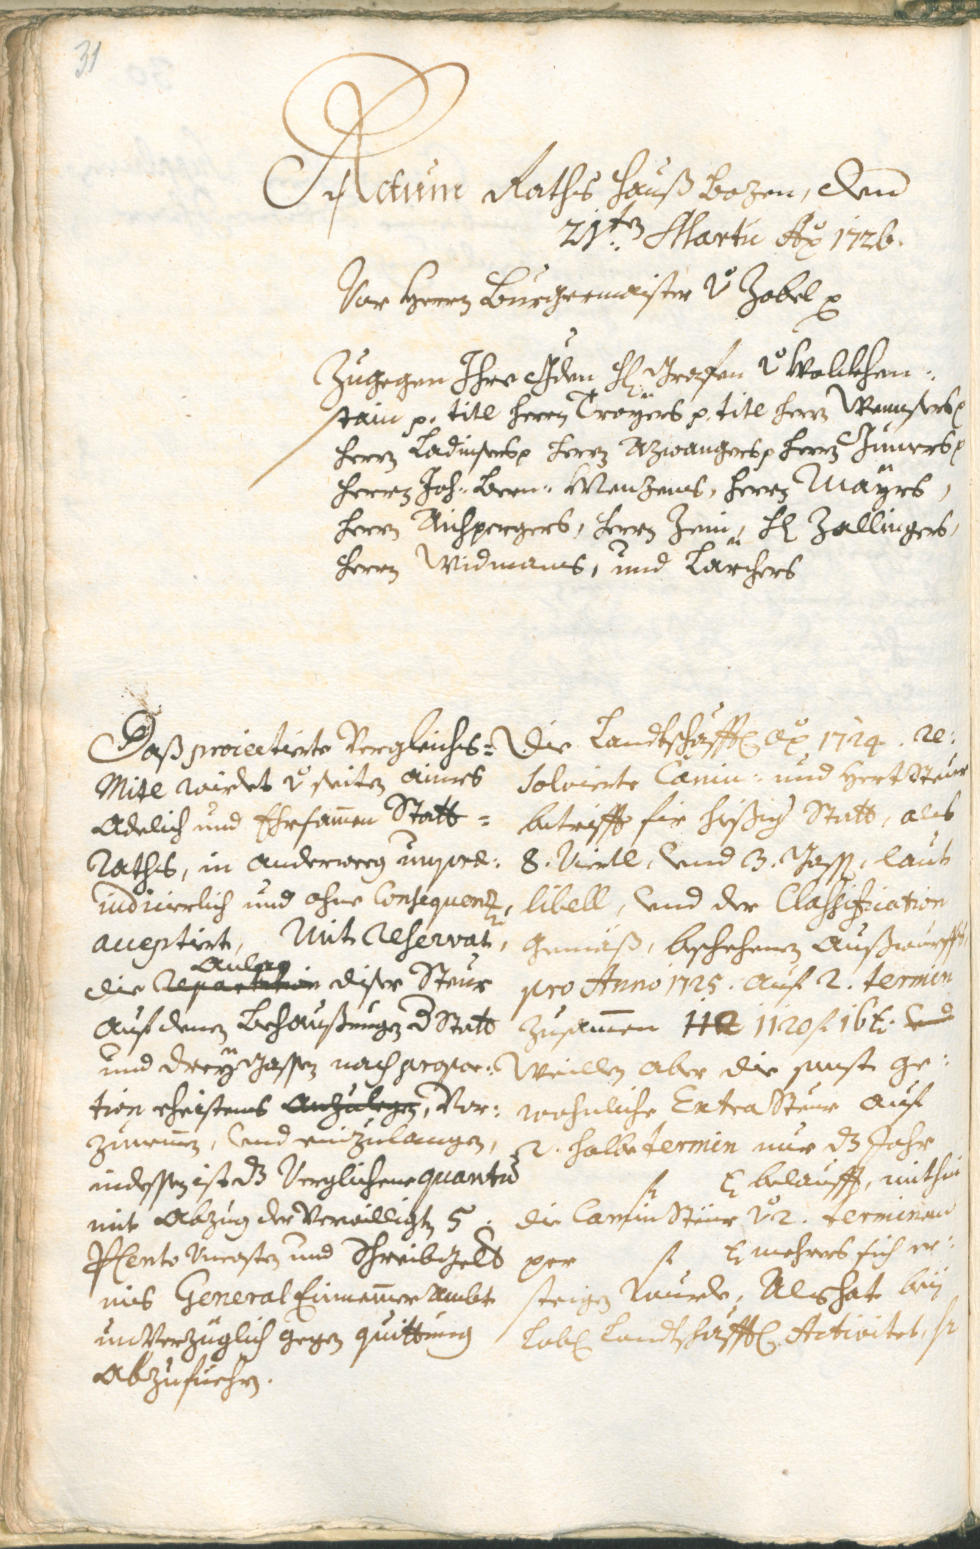 31
Actum Rathshauß Bozen, den
21ten Martii Ao 1726.
Vor Herrn Burgermaister v Zobel p
Zugegen Ihro Gden Hl Grafen v Wolkhen-
stain p. titl herrn Troyers p. titl herrn
herrn Ladinsers p herrn Azwangers p herrn
herrn Joh: Bern: Menzens, herrn Mayrs,
herrn Aichpergers, herrn Zeni, Hl Zallingers,
herrn Widmans, und Larchers
Daß proiectierte Vergleichs-
Mitl wirdet v seiten aines
Adelich und Ehrsamen Statt-
Raths, in anderweeg unpre-
iudicierlich und ohne Consequenz,
acceptiert, Mit Reservat,
Anlag
die Repartition diser Steur
auf denen Behaußungen d Statt
und drey Gassen nach propor-
tion ehistens anzulegen, Vor-
zunemen, und einzulangen,
indessen ist dz Verglichene quantum
mit Abzug der Verwilligten 5.
PCento Uncosten und Schreibgelt
ins General Einnemer Ambt
unverzüglich gegen quittung
Abzufüehren.
Die Landtschäfftl Ao 1724. re-
solvierte Camin- und Hert Steur
betrifft für hießige Statt, als
8. Viertl, und 3. Gassen, laut
libell, und der Classification
gemäß, beschehenen Außwurff
pro Anno 1725. auf 2. termin
zusamen 112 1120 f 16 k. und
Weillen aber die sonst ge-
wohnliche Extra Steur auf
2. halbe termin nur dz Jahr
f k belaufft, mithin
die Camin Steur v 2. terminen
per f k mehrers sich er-
steigen wurde, Als hat bey
Löbl Landtschäfftl. Activitet, h